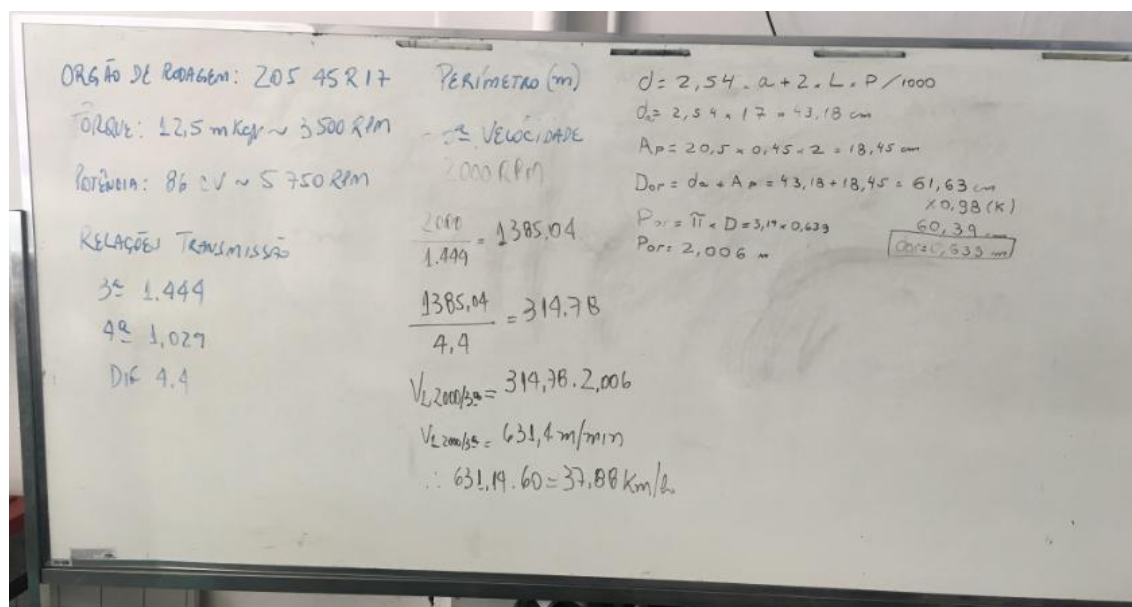 ORGÃO DE RODAGEM: 205 45R17
TORQUE: 12,5 mKgf ~ 3500 RPM
POTÊNCIA: 86 CV ~ 5750 RPM
RELAÇÕES TRANSMISSÃO
3ª 1.444
4ª 1,029
DIF 4.4
PERÍMETRO (m)
3ª VELOCIDADE
2000 RPM
2000
1.444
= 1385,04
1385,04
4,4
= 314.78
VL2000/3ª = 314,78.2,006
VL2000/3ª = 631,4 m/min
∴ 631,14.60 = 37,88 Km/h
d = 2,54 . a + 2 . L . P / 1000
da = 2,54 x 17 = 43,18 cm
Ap = 20,5 x 0,45 x 2 = 18,45 cm
Dor = da + Ap = 43,18 + 18,45 = 61,63 cm
x0,98 (K)
60,39 cm
Por = π x D = 3,14 x 0,639
Dor = 0,639 m
Por = 2,006 m